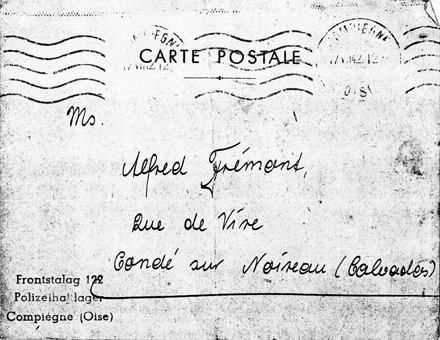 CARTE POSTALE
COMPIEGNE
Ms.
Alfred Frémont,
Rue de Vire
Condé sur Noireau (Calvados)
Frontstalag 122
Polizeihaftlager
Compiègne (Oise)